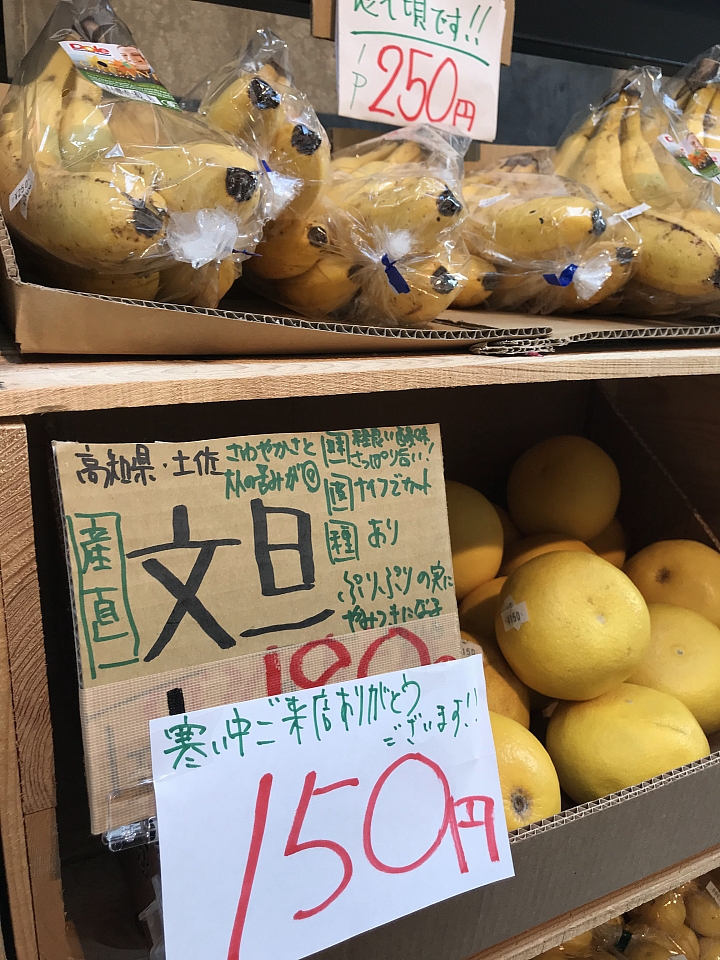 食べ頃です!!
1P
250円
Dole
高知県・土佐
さわやかさと
大人の苦みが
産直
文旦
ナイフでカット
種 あり
ぷりぷりの実に
やみつきになる
180
寒い中ご来店ありがとう
ございます!!
150円
¥150